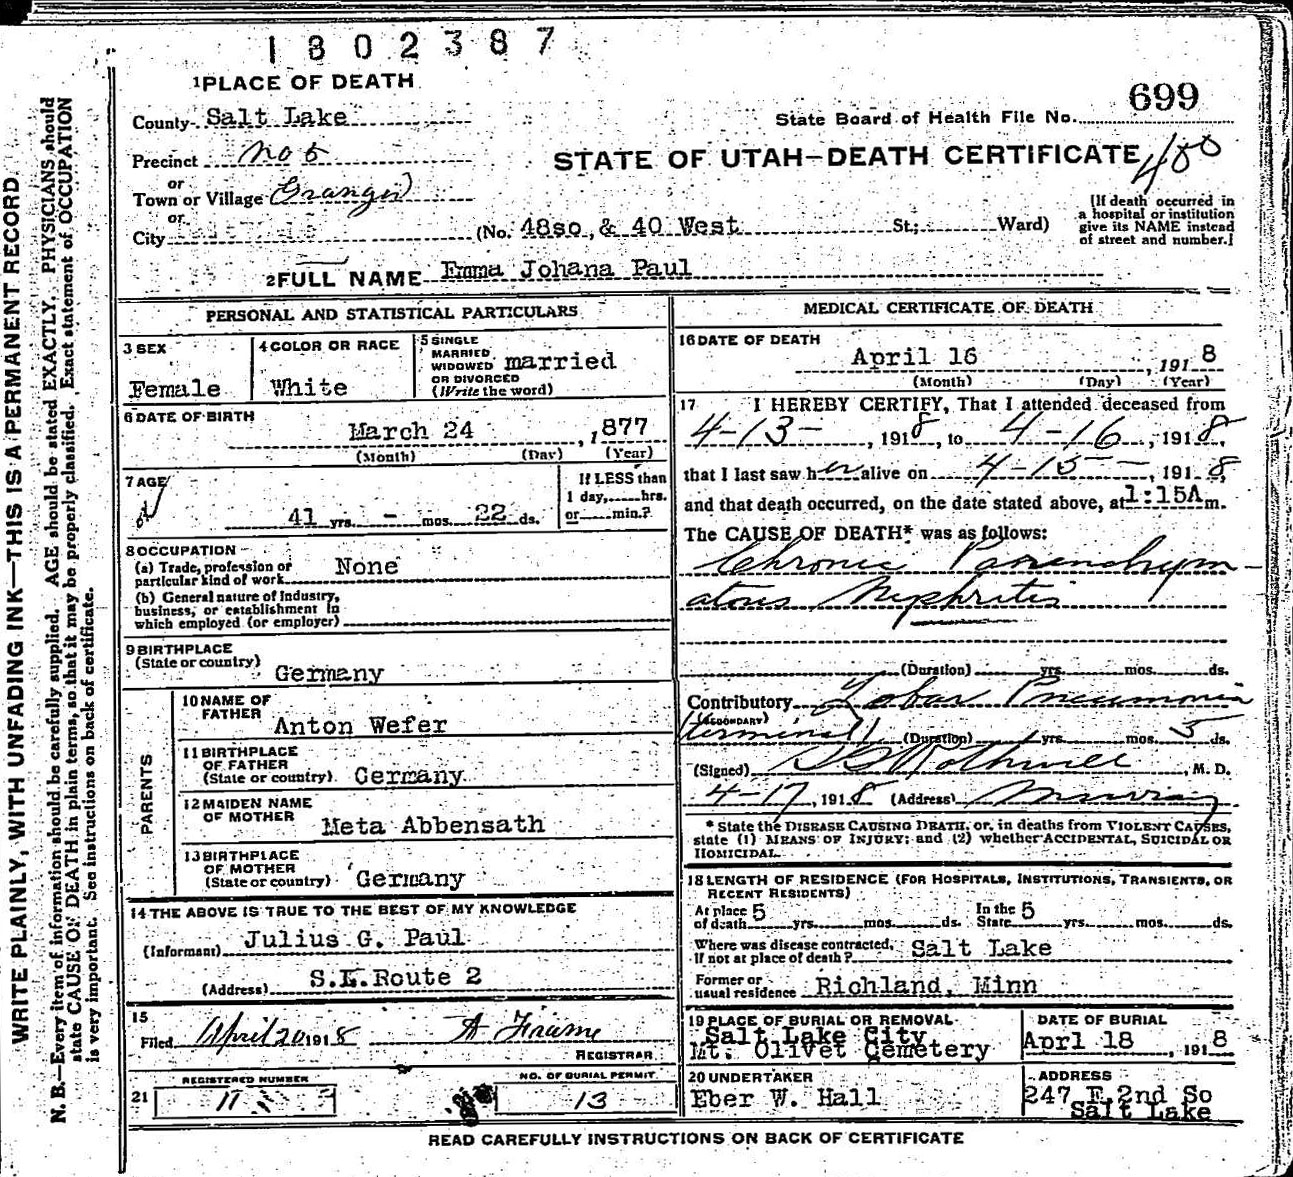 1802387
1 PLACE OF DEATH
699
County Salt Lake
State Board of Health File No.
Precinct No 6
STATE OF UTAH—DEATH CERTIFICATE
400
or
Town or Village Granger
or
City
(No. 48so, & 40 West St; Ward)
[If death occurred in
a hospital or institution
give its NAME instead
of street and number.]
2 FULL NAME Emma Johana Paul
PERSONAL AND STATISTICAL PARTICULARS
3 SEX
Female
4 COLOR OR RACE
White
5 SINGLE
MARRIED
WIDOWED
OR DIVORCED
(Write the word)
married
6 DATE OF BIRTH
March 24, 1877
(Month) (Day) (Year)
7 AGE
41 yrs. - mos. 22 ds.
If LESS than
1 day, hrs.
or min.?
8 OCCUPATION
(a) Trade, profession or
particular kind of work None
(b) General nature of Industry,
business, or establishment in
which employed (or employer)
9 BIRTHPLACE
(State or country)
Germany
PARENTS
10 NAME OF
FATHER
Anton Wefer
11 BIRTHPLACE
OF FATHER
(State or country) Germany
12 MAIDEN NAME
OF MOTHER
Meta Abbensath
13 BIRTHPLACE
OF MOTHER
(State or country) Germany
14 THE ABOVE IS TRUE TO THE BEST OF MY KNOWLEDGE
(Informant) Julius G. Paul
(Address) S.L. Route 2
15
Filed April 20 1918
REGISTRAR
REGISTERED NUMBER
NO. OF BURIAL PERMIT
21 11
13
MEDICAL CERTIFICATE OF DEATH
16 DATE OF DEATH
April 16, 1918
(Month) (Day) (Year)
17 I HEREBY CERTIFY, That I attended deceased from
4-13-, 1918, to 4-16, 1918,
that I last saw her alive on 4-15-, 1918,
and that death occurred, on the date stated above, at 1:15A m.
The CAUSE OF DEATH* was as follows:
Chronic Parenchym-
atous Nephritis
(Duration) yrs. mos. ds.
Contributory Lobar Pneumonia
(SECONDARY)
(terminal) (Duration) yrs. mos. 5 ds.
(Signed) Rothwell, M. D.
4-17, 1918 (Address) Murray
* State the DISEASE CAUSING DEATH, or, in deaths from VIOLENT CAUSES,
state (1) MEANS OF INJURY; and (2) whether ACCIDENTAL, SUICIDAL OR
HOMICIDAL.
18 LENGTH OF RESIDENCE (FOR HOSPITALS, INSTITUTIONS, TRANSIENTS, OR
RECENT RESIDENTS)
At place
of death 5 yrs. mos. ds.
In the
State 5 yrs. mos. ds.
Where was disease contracted,
If not at place of death? Salt Lake
Former or
usual residence Richland, Minn
19 PLACE OF BURIAL OR REMOVAL
Salt Lake City
Mt. Olivet Cemetery
DATE OF BURIAL
Aprl 18, 1918
20 UNDERTAKER
Eber W. Hall
ADDRESS
247 E. 2nd So
Salt Lake
READ CAREFULLY INSTRUCTIONS ON BACK OF CERTIFICATE
WRITE PLAINLY, WITH UNFADING INK—THIS IS A PERMANENT RECORD
N. B.—Every item of information should be carefully supplied. AGE should be stated EXACTLY. PHYSICIANS should
state CAUSE OF DEATH in plain terms, so that it may be properly classified. Exact statement of OCCUPATION
is very important. See instructions on back of certificate.